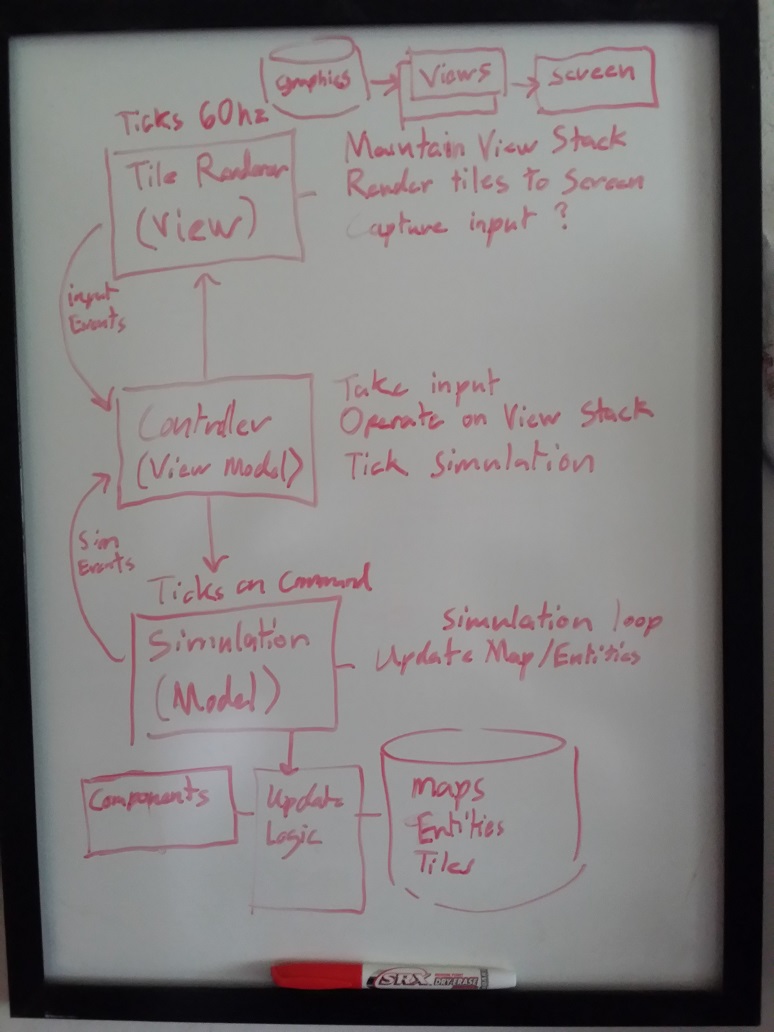 Graphics
Views
Screen
Ticks 60hz
Tile Renderer
(View)
Maintain View Stack
Render tiles to Screen
Capture input ?
input
Events
Controller
(View Model)
Take input
Operate on View Stack
Tick Simulation
Sim
Events
Ticks on Command
Simulation
(Model)
Simulation loop
Update Map/Entities
Components
Update
Logic
Maps
Entities
Tiles
SRX DRY ERASE